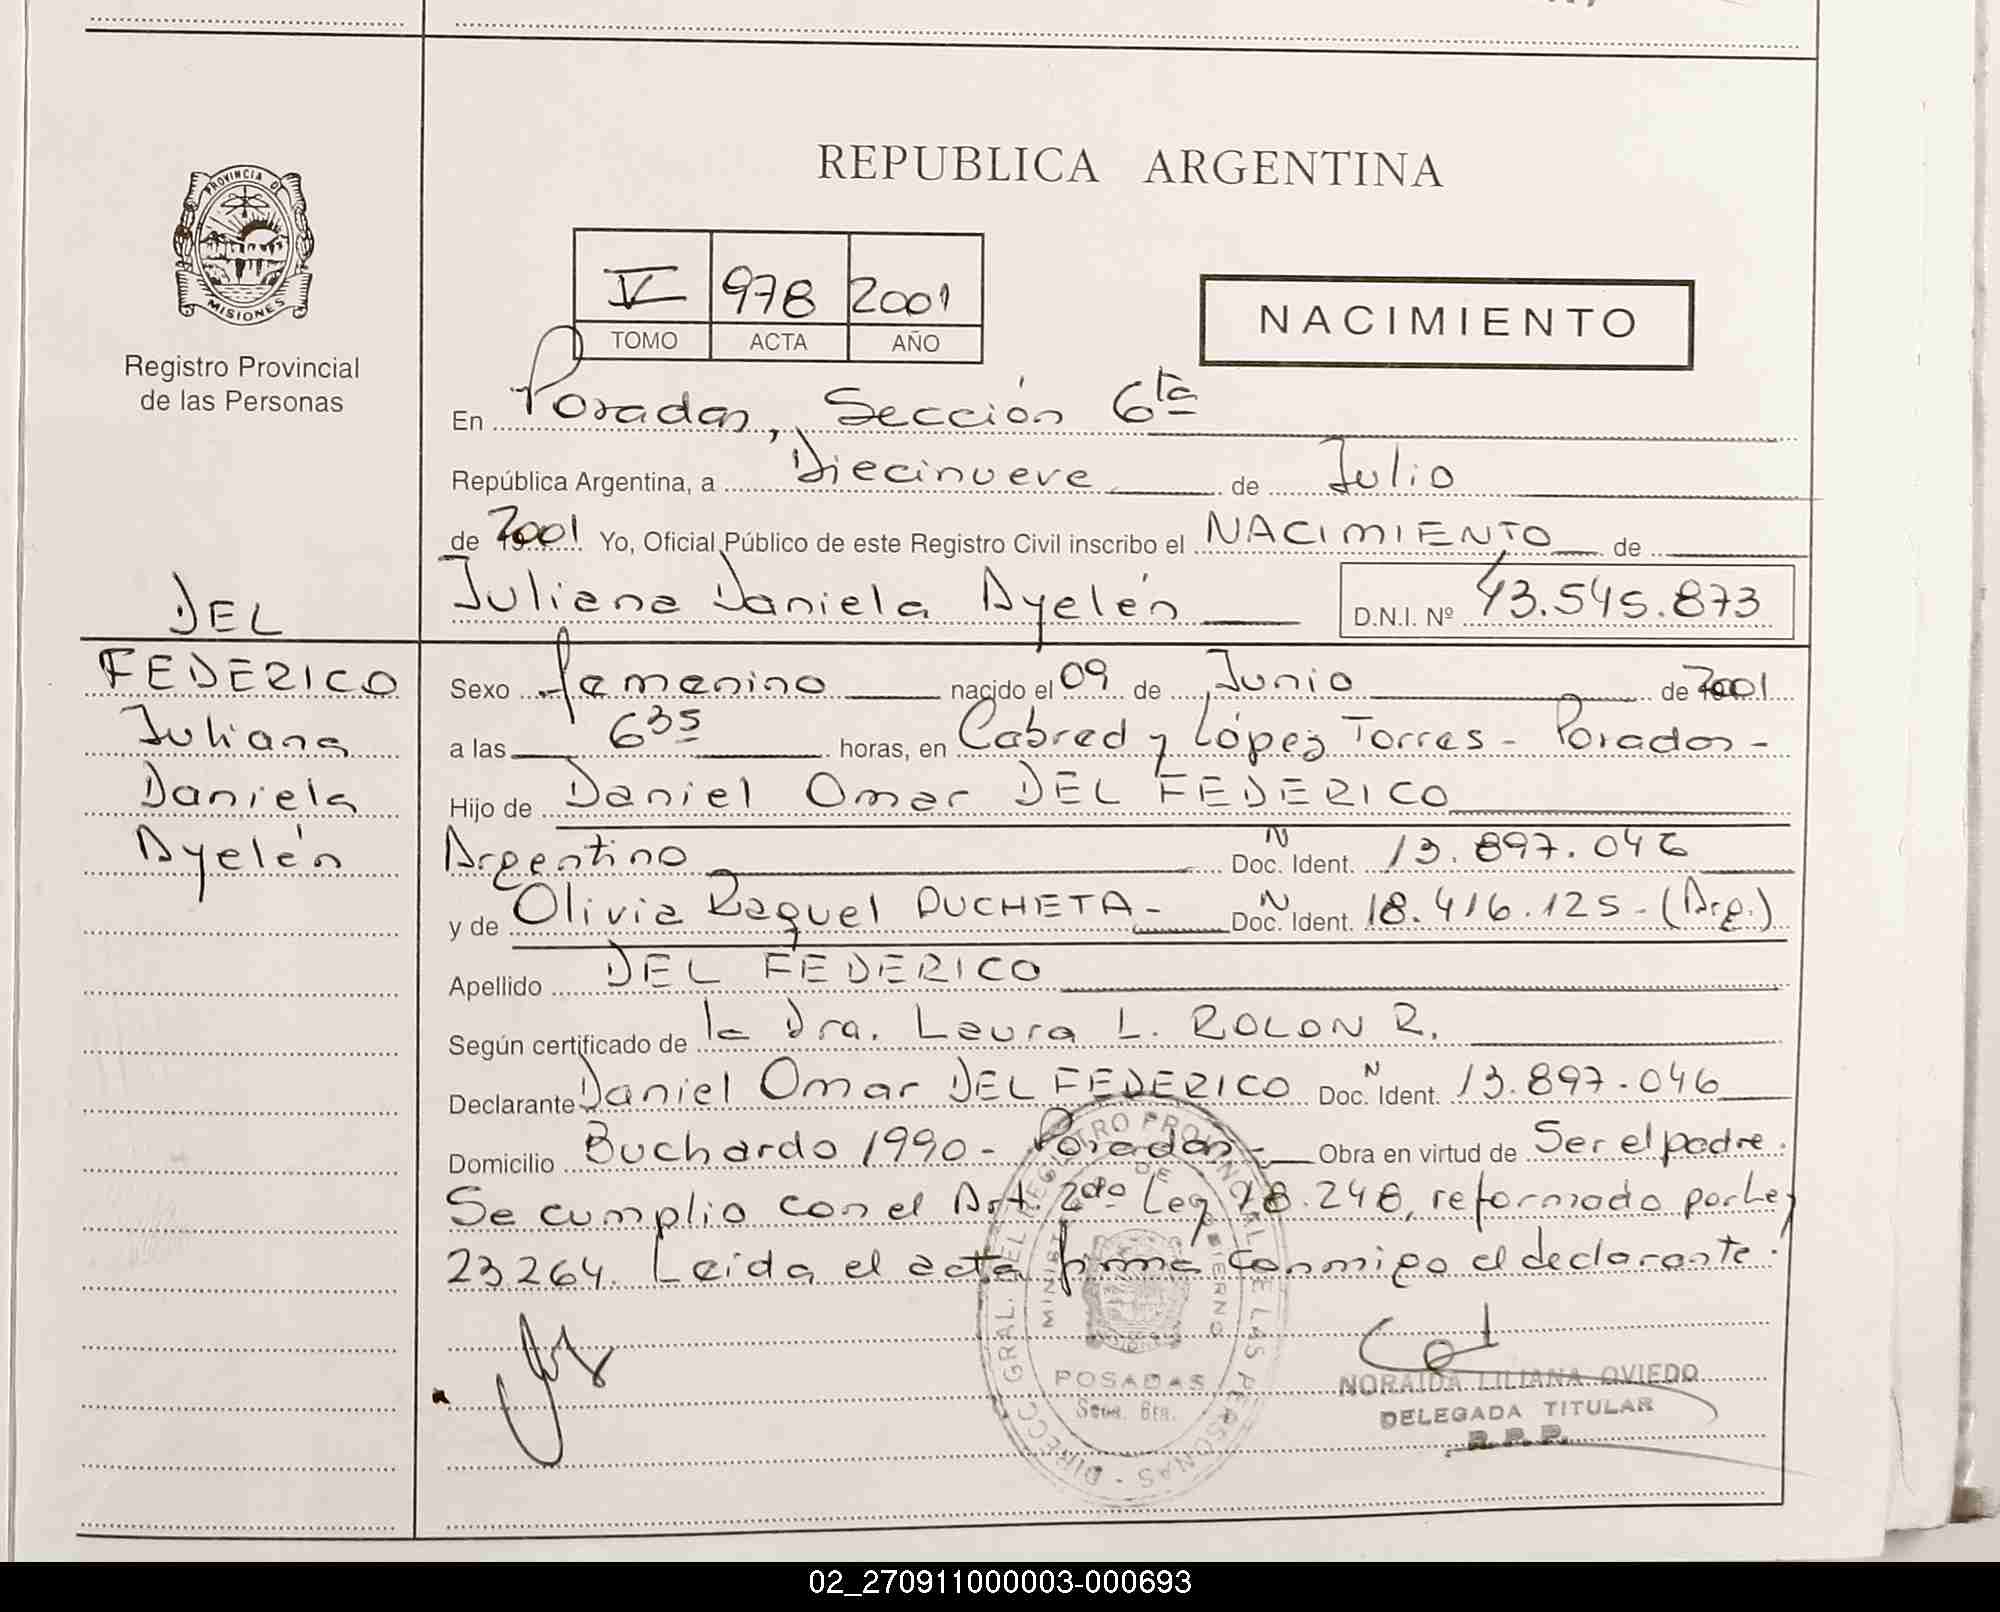 REPUBLICA ARGENTINA
PROVINCIA DE
MISIONES
Registro Provincial
de las Personas
V 978 2001
TOMO ACTA AÑO
NACIMIENTO
En Posadas, Sección 6ta
República Argentina, a Diecinueve de Julio
de 2001 Yo, Oficial Público de este Registro Civil inscribo el NACIMIENTO de
Juliana Daniela Ayelén D.N.I. Nº 43.545.873
DEL
FEDERICO
Juliana
Daniela
Ayelén
Sexo femenino nacido el 09 de Junio de 2001
a las 6 35 horas, en Cabred y López Torres - Posadas -
Hijo de Daniel Omar DEL FEDERICO
Argentino Doc. N Ident. 13.897.046
y de Olivia Raquel DUCHETA - Doc. N Ident. 18.416.125 - (Arg.)
Apellido DEL FEDERICO
Según certificado de la Dra. Laura L. ROLON R.
Declarante Daniel Omar DEL FEDERICO Doc. N Ident. 13.897.046
Domicilio Buchardo 1990 - Posadas - Obra en virtud de Ser el padre.
Se cumplio con el Art. 2do Ley 18.248, reformado por Ley
23.264. Leida el acta firma conmigo el declarante.
DIRECC. GRAL. DEL REGISTRO PROVINCIAL DE LAS PERSONAS
POSADAS
Secc. 6ta.
NORAIDA LILIANA OVIEDO
DELEGADA TITULAR
R.P.P.
02_270911000003-000693